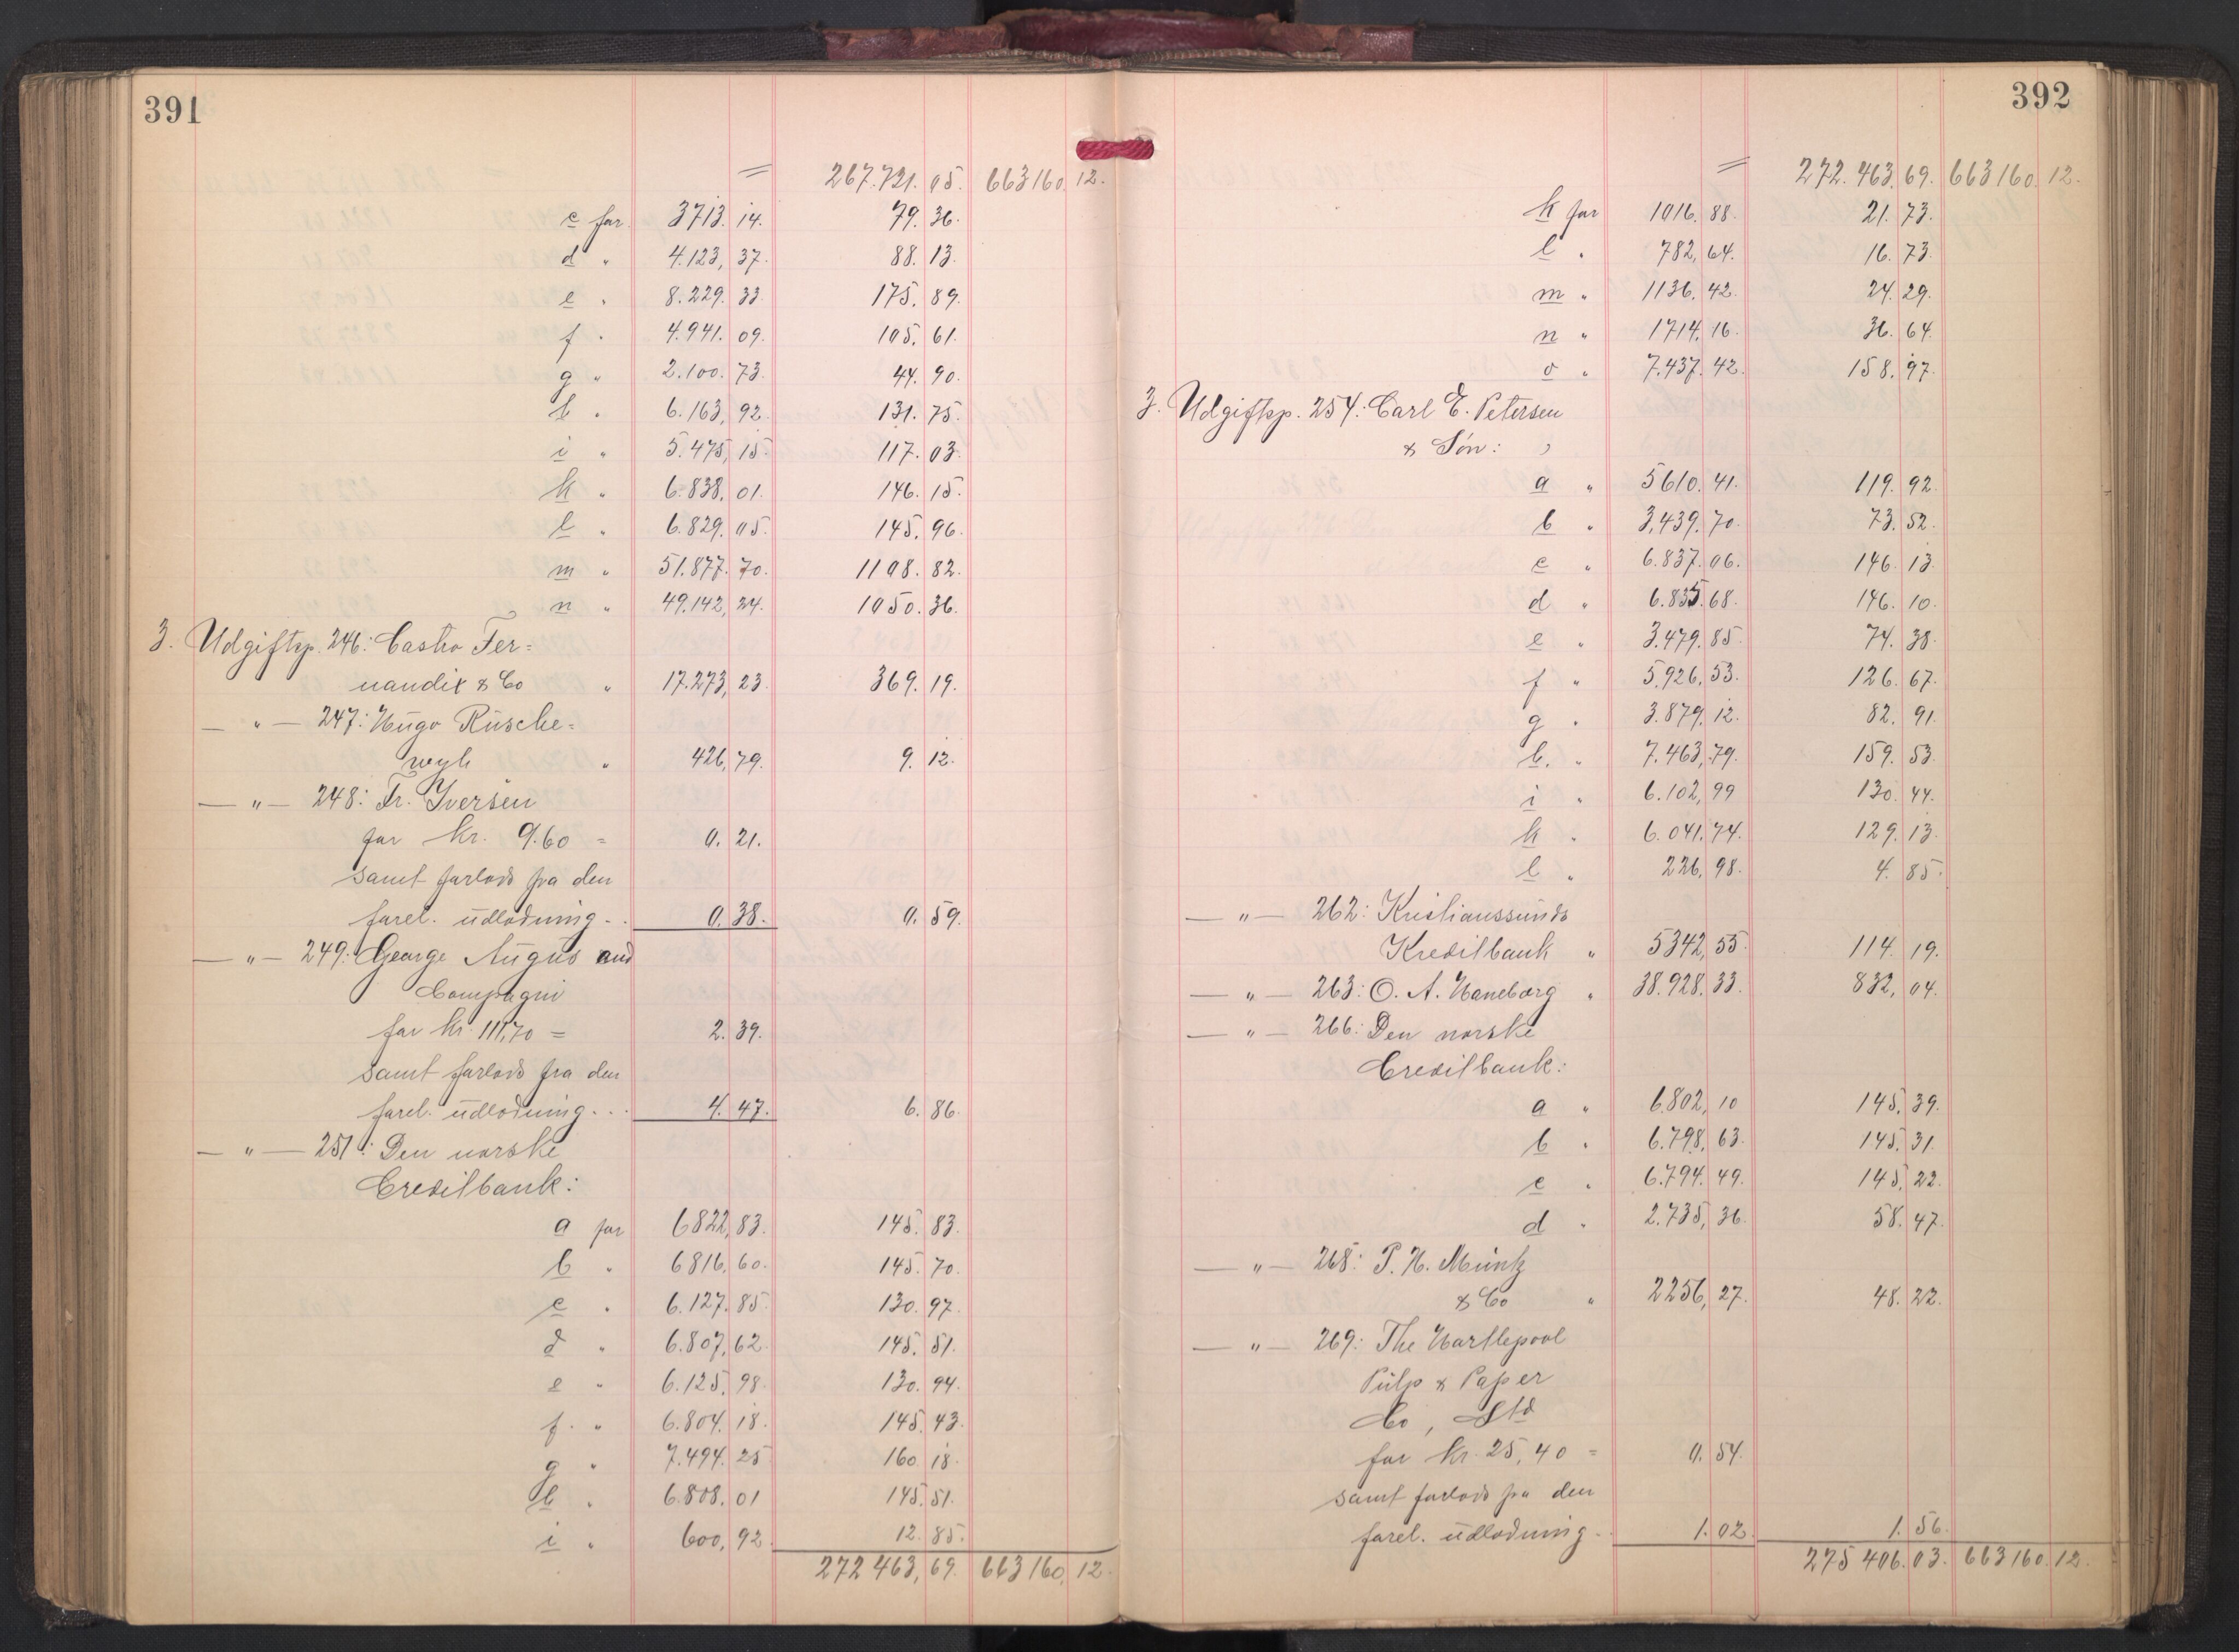 391
= 267.721.05. 663160.12.
c for 3713.14. 79.36.
d " 4.123,37. 88.13.
e " 8.229.33. 175.89.
f " 4.941.09. 105.61.
g " 2.100.73. 44.90.
h " 6.163,92. 131.75.
i " 5.475,15. 117.03.
k " 6.838,01. 146.15.
l " 6.829.05. 145.96.
m " 51.877.70. 1108.82.
n " 49.142,24. 1050.36.
3. Udgiftsp. 246: Castro Fer=
nandix & Co " 17.273,23. 369.19.
— " — 247: Hugo Rusche=
weyh " 426,79. 9.12.
— " — 248: Fr. Iversen
for kr. 9.60 = 0.21.
samt forlods fra den
forel. udlodning - . 0.38. 0.59.
— " — 249: George Angus and
Compagni
for kr. 111,70 = 2.39.
samt forlods fra den
forel. udlodning . . . 4.47. 6.86.
— " — 251: Den norske
Creditbank:
a for 6822,83. 145.83.
b " 6816,60. 145.70.
c " 6.127.85. 130.97.
d " 6.807,62. 145.51.
e " 6.125,98. 130.94.
f. " 6.804.18. 145.43.
g " 7.494.25 160.18.
h " 6.808.01 145.51.
i " 600,92 12.85.
272463,69. 663160,12.
392
= 272.463,69. 663160.12.
k for 1016.88. 21.73.
l " 782,64. 16.73.
m " 1136.42. 24.29.
n " 1714,16. 36.64.
o " 7.437.42. 158.97.
3. Udgiftsp. 254: Carl E. Petersen
& Søn:
a " 5610.41. 119.92.
b " 3,439.70. 73.52.
c " 6.837.06. 146.13.
d " 6.835.68. 146.10.
e " 3.479.85. 74.38.
f " 5.926,53. 126.67.
g " 3.879.12. 82.91.
h. " 7.463,79. 159.53.
i " 6.102,99 130.44.
k " 6.041.74. 129.13.
l " 226,98. 4.85.
— " — 262: Kristianssunds
Kreditbank " 5342,55. 114.19.
— " — 263: O. A. Haneborg " 38.928,33. 832,04.
— " — 266: Den norske
Creditbank:
a " 6.802,10 145.39.
b " 6.798,63. 145.31.
c " 6.794.49. 145.22.
d " 2.735,36. 58.47.
— " — 268: P. H. Müntz
& Co " 2256,27. 48.22.
— " — 269: The Hartlepool
Pulp & Paper
Co, Ltd
for kr. 25,40 = 0.54.
samt forlods fra den
forel. udlodning - . 1.02. 1.56.
275406.03. 663160.12.